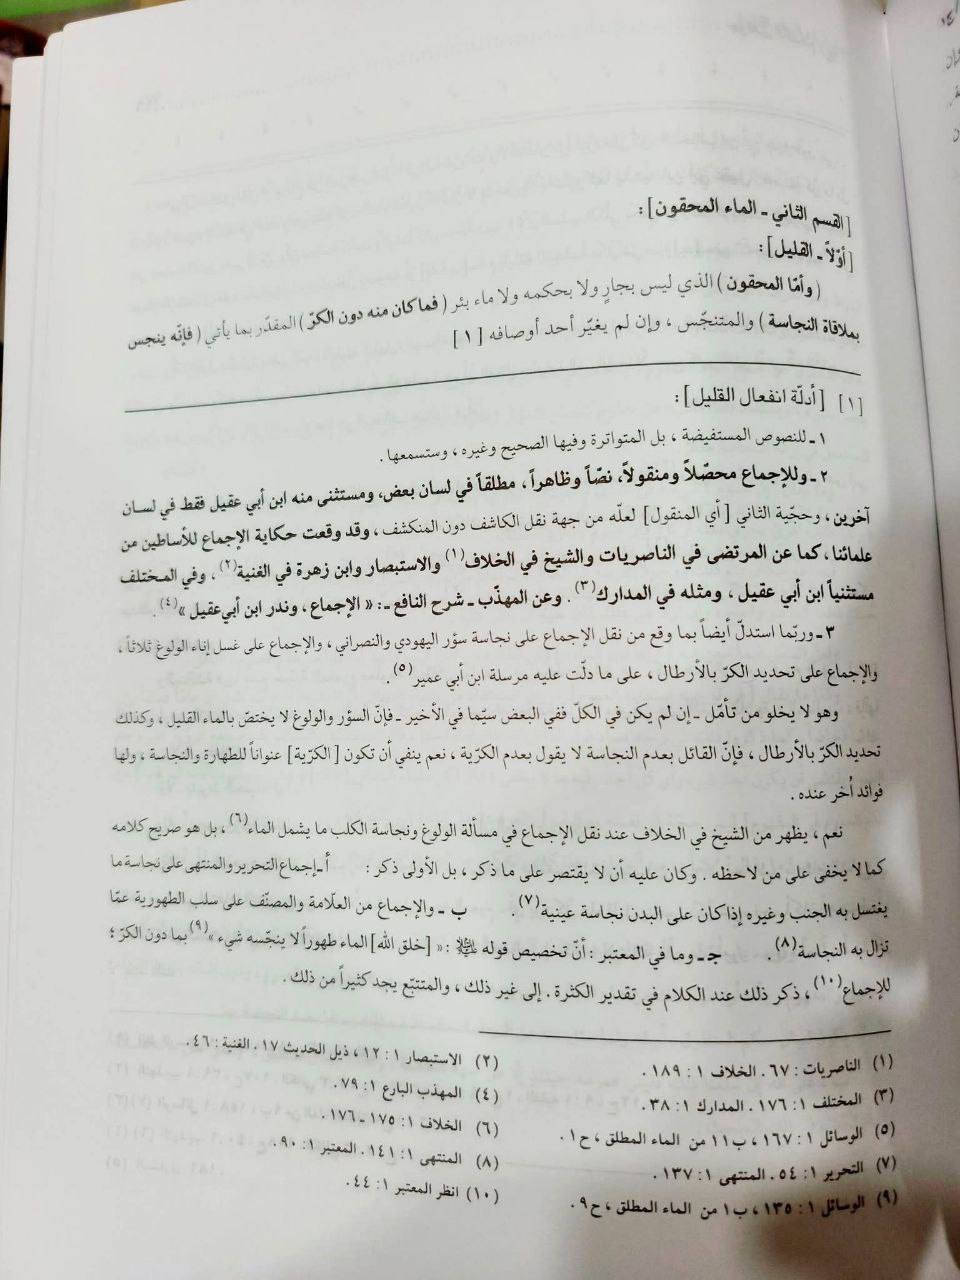 [القسم الثاني ـ الماء المحقون]:
[أوّلاً ـ القليل]:
( وأمّا المحقون ) الذي ليس بجارٍ ولا بحكمه ولا ماء بئر ( فما كان منه دون الكرّ ) المقدّر بما يأتي ( فإنّه ينجس
بملاقاة النجاسة ) والمتنجّس ، وإن لم يغيّر أحد أوصافه [ ١ ]
[١] [أدلّة انفعال القليل]:
١ ـ للنصوص المستفيضة ، بل المتواترة وفيها الصحيح وغيره ، وستسمعها .
٢ ـ وللإجماع محصّلاً ومنقولاً، نصّاً وظاهراً ، مطلقاً في لسان بعض، ومستثنى منه ابن أبي عقيل فقط في لسان
آخرين ، وحجّية الثاني [ أي المنقول] لعلّه من جهة نقل الكاشف دون المنكشف ، وقد وقعت حكاية الإجماع للأساطين من
علمائنا ، كما عن المرتضى في الناصريات والشيخ في الخلاف(١) والاستبصار وابن زهرة في الغنية(٢) ، وفي المختلف
مستثنياً ابن أبي عقيل ، ومثله في المدارك(٣) . وعن المهذّب ـ شرح النافع ـ: « الإجماع ، وندر ابن أبي عقيل »(٤) .
٣ ـ وربّما استدلّ أيضاً بما وقع من نقل الإجماع على نجاسة سؤر اليهودي والنصراني ، والإجماع على غسل إناء الولوغ ثلاثاً ،
والإجماع على تحديد الكرّ بالأرطال ، على ما دلّت عليه مرسلة ابن أبي عمير(٥) .
وهو لا يخلو من تأمّل ـ إن لم يكن في الكلّ ففي البعض سيّما في الأخير ـ فإنّ السؤر والولوغ لا يختصّ بالماء القليل ، وكذلك
تحديد الكرّ بالأرطال ، فإنّ القائل بعدم النجاسة لا يقول بعدم الكرّية ، نعم ينفي أن تكون [الكرّية] عنواناً للطهارة والنجاسة ، ولها
فوائد أُخر عنده .
نعم ، يظهر من الشيخ في الخلاف عند نقل الإجماع في مسألة الولوغ ونجاسة الكلب ما يشمل الماء(٦) ، بل هو صريح كلامه
كما لا يخفى على من لاحظه . وكان عليه أن لا يقتصر على ما ذكر ، بل الأولى ذكر : أ ـ إجماع التحرير والمنتهى على نجاسة ما
يغتسل به الجنب وغيره إذا كان على البدن نجاسة عينية(٧) . ب ـ والإجماع من العلّامة والمصنّف على سلب الطهورية عمّا
تزال به النجاسة(٨) . جـ ـ وما في المعتبر : أنّ تخصيص قوله ﷺ :« [خلق الله] الماء طهوراً لا ينجّسه شيء »(٩) بما دون الكرّ ؛
للإجماع(١٠) ، ذكر ذلك عند الكلام في تقدير الكثرة . إلى غير ذلك ، والمتتبّع يجد كثيراً من ذلك .
(١) الناصريات : ٦٧ . الخلاف ١ : ١٨٩ .
(٢) الاستبصار ١ : ١٢ ، ذيل الحديث ١٧ . الغنية : ٤٦ .
(٣) المختلف ١ : ١٧٦ . المدارك ١ : ٣٨ .
(٤) المهذب البارع ١ : ٧٩ .
(٥) الوسائل ١ : ١٦٧ ، ب ١١ من الماء المطلق ، ح ١ .
(٦) الخلاف ١ : ١٧٥ ـ ١٧٦ .
(٧) التحرير ١ : ٥٤ . المنتهى ١ : ١٣٧ .
(٨) المنتهى ١ : ١٤١ . المعتبر ١ : ٩٠ .
(٩) الوسائل ١ : ١٣٥ ، ب ١ من الماء المطلق ، ح ٩ .
(١٠) انظر المعتبر ١ : ٤٤ .